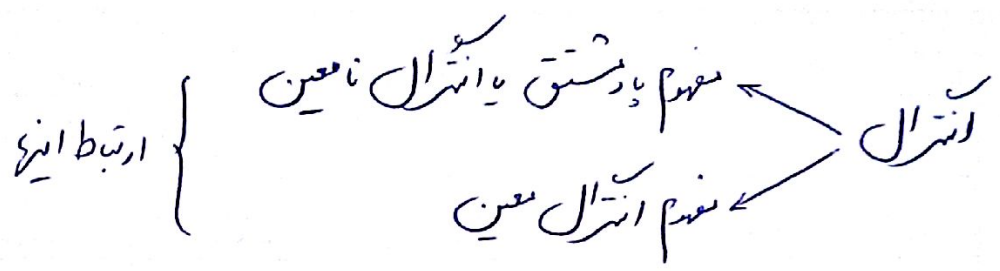 انتگرال
مفهوم پادمشتق یا انتگرال نامعین
مفهوم انتگرال معین
ارتباط اینها